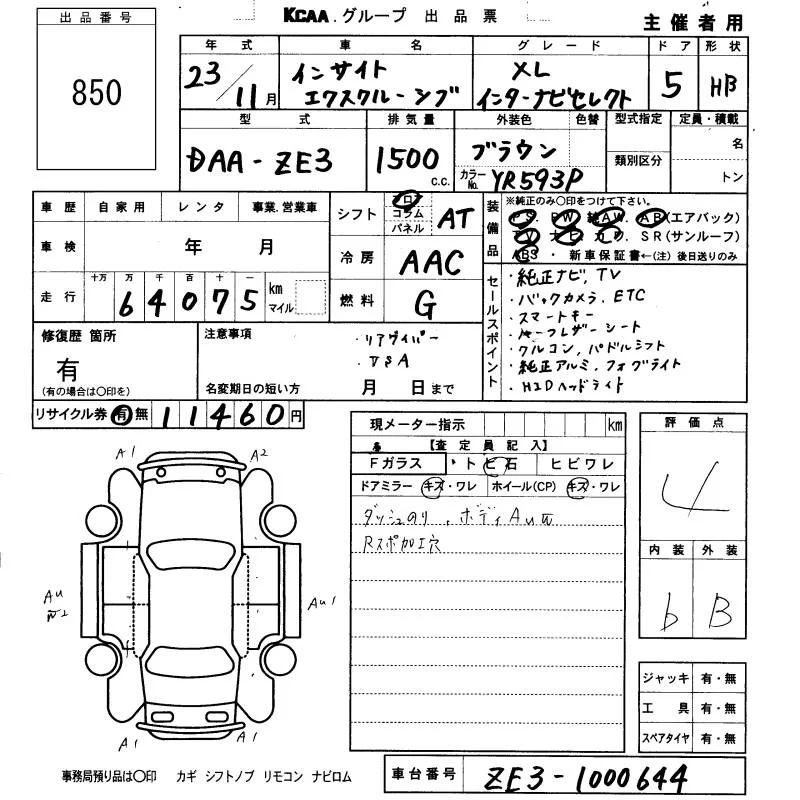 出品番号
850
KCAA.グループ 出品票
主催者用
年式 車名 グレード ドア 形状
23/11月 インサイト エクスクルーシブ XL インターナビセレクト 5 HB
型式 排気量 外装色 色替 型式指定 定員・積載
DAA-ZE3 1500 c.c. ブラウン
カラーNo. YR593P
類別区分
名
トン
車歴 自家用 レンタ 事業.営業車
車検 年 月
走行 十万 万 千 百 十 一
64075 km マイル
シフト フロア コラム パネル AT
冷房 AAC
燃料 G
装備品 ※純正のみ○印をつけて下さい。
PS. PW. 純AW. AB(エアバック)
TV. ナビ. カワ. SR(サンルーフ)
ABS ・ 新車保証書←(注)後日送りのみ
セールスポイント
・純正ナビ, TV
・バックカメラ、ETC
・スマートキー
・ハーフレザーシート
・クルコン, パドルシフト
・純正アルミ, フォグライト
・HIDヘッドライト
修復歴 箇所
有
(有の場合は○印を)
注意事項
・リアワイパー
・VSA
名変期日の短い方 月 日まで
リサイクル券 有 無 11460円
現メーター指示 km
【査定員記入】
Fガラス ・トビ石 ヒビワレ
ドアミラー キズ・ワレ ホイール(CP) キズ・ワレ
ダッシュのり、ボディAUW
Rスポ加工穴
評価点
4
内装 外装
b B
A1 A2
AU
W2
AU1
A1 A1
ジャッキ 有・無
工具 有・無
スペアタイヤ 有・無
事務局預り品は○印 カギ シフトノブ リモコン ナビロム
車台番号 ZE3-1000644